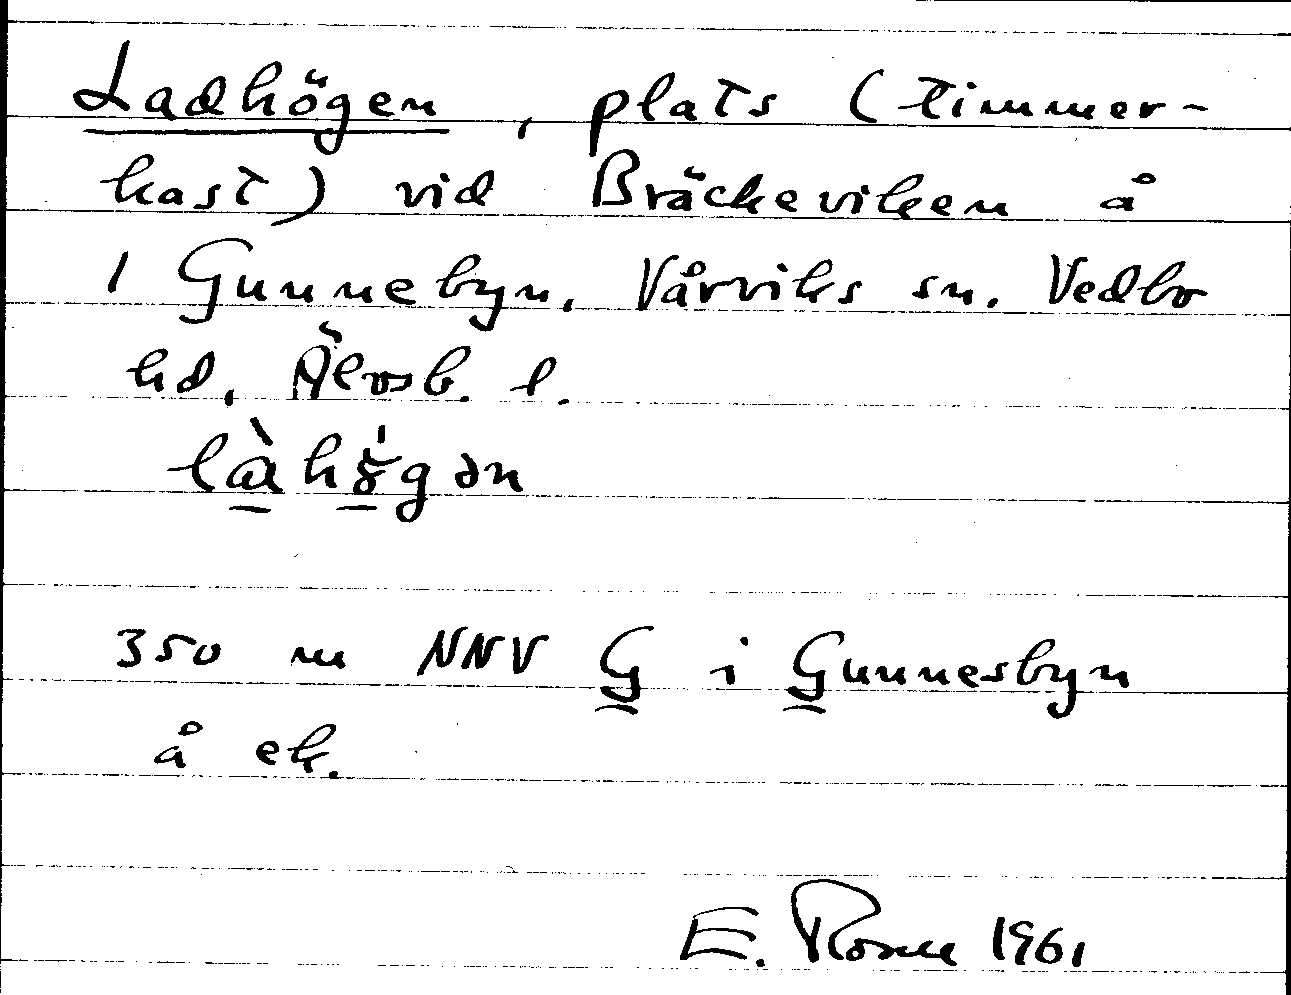 Ladhögen, plats (timmer-
kast) vid Bräckeviken å
1 Gunnebyn, Vårviks sn. Vedbo
hd, Älvsb. l.
là̱hö̱́gən
350 m NNV G i Gunnesbyn
å ek.
E. 1961